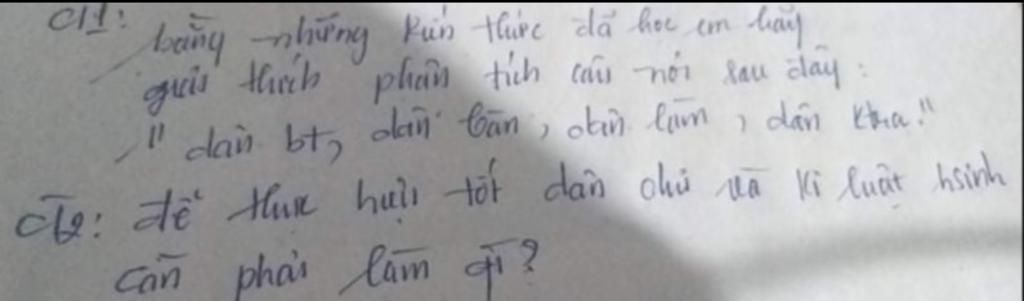 C1: bằng những kiến thức đã học em hãy
giải thích phân tích câu nói sau đây:
"dân bt, dân bàn, dân làm, dân ktra."
C2: để thực hiện tốt dân chủ và kỉ luật hsinh
cần phải làm gì?